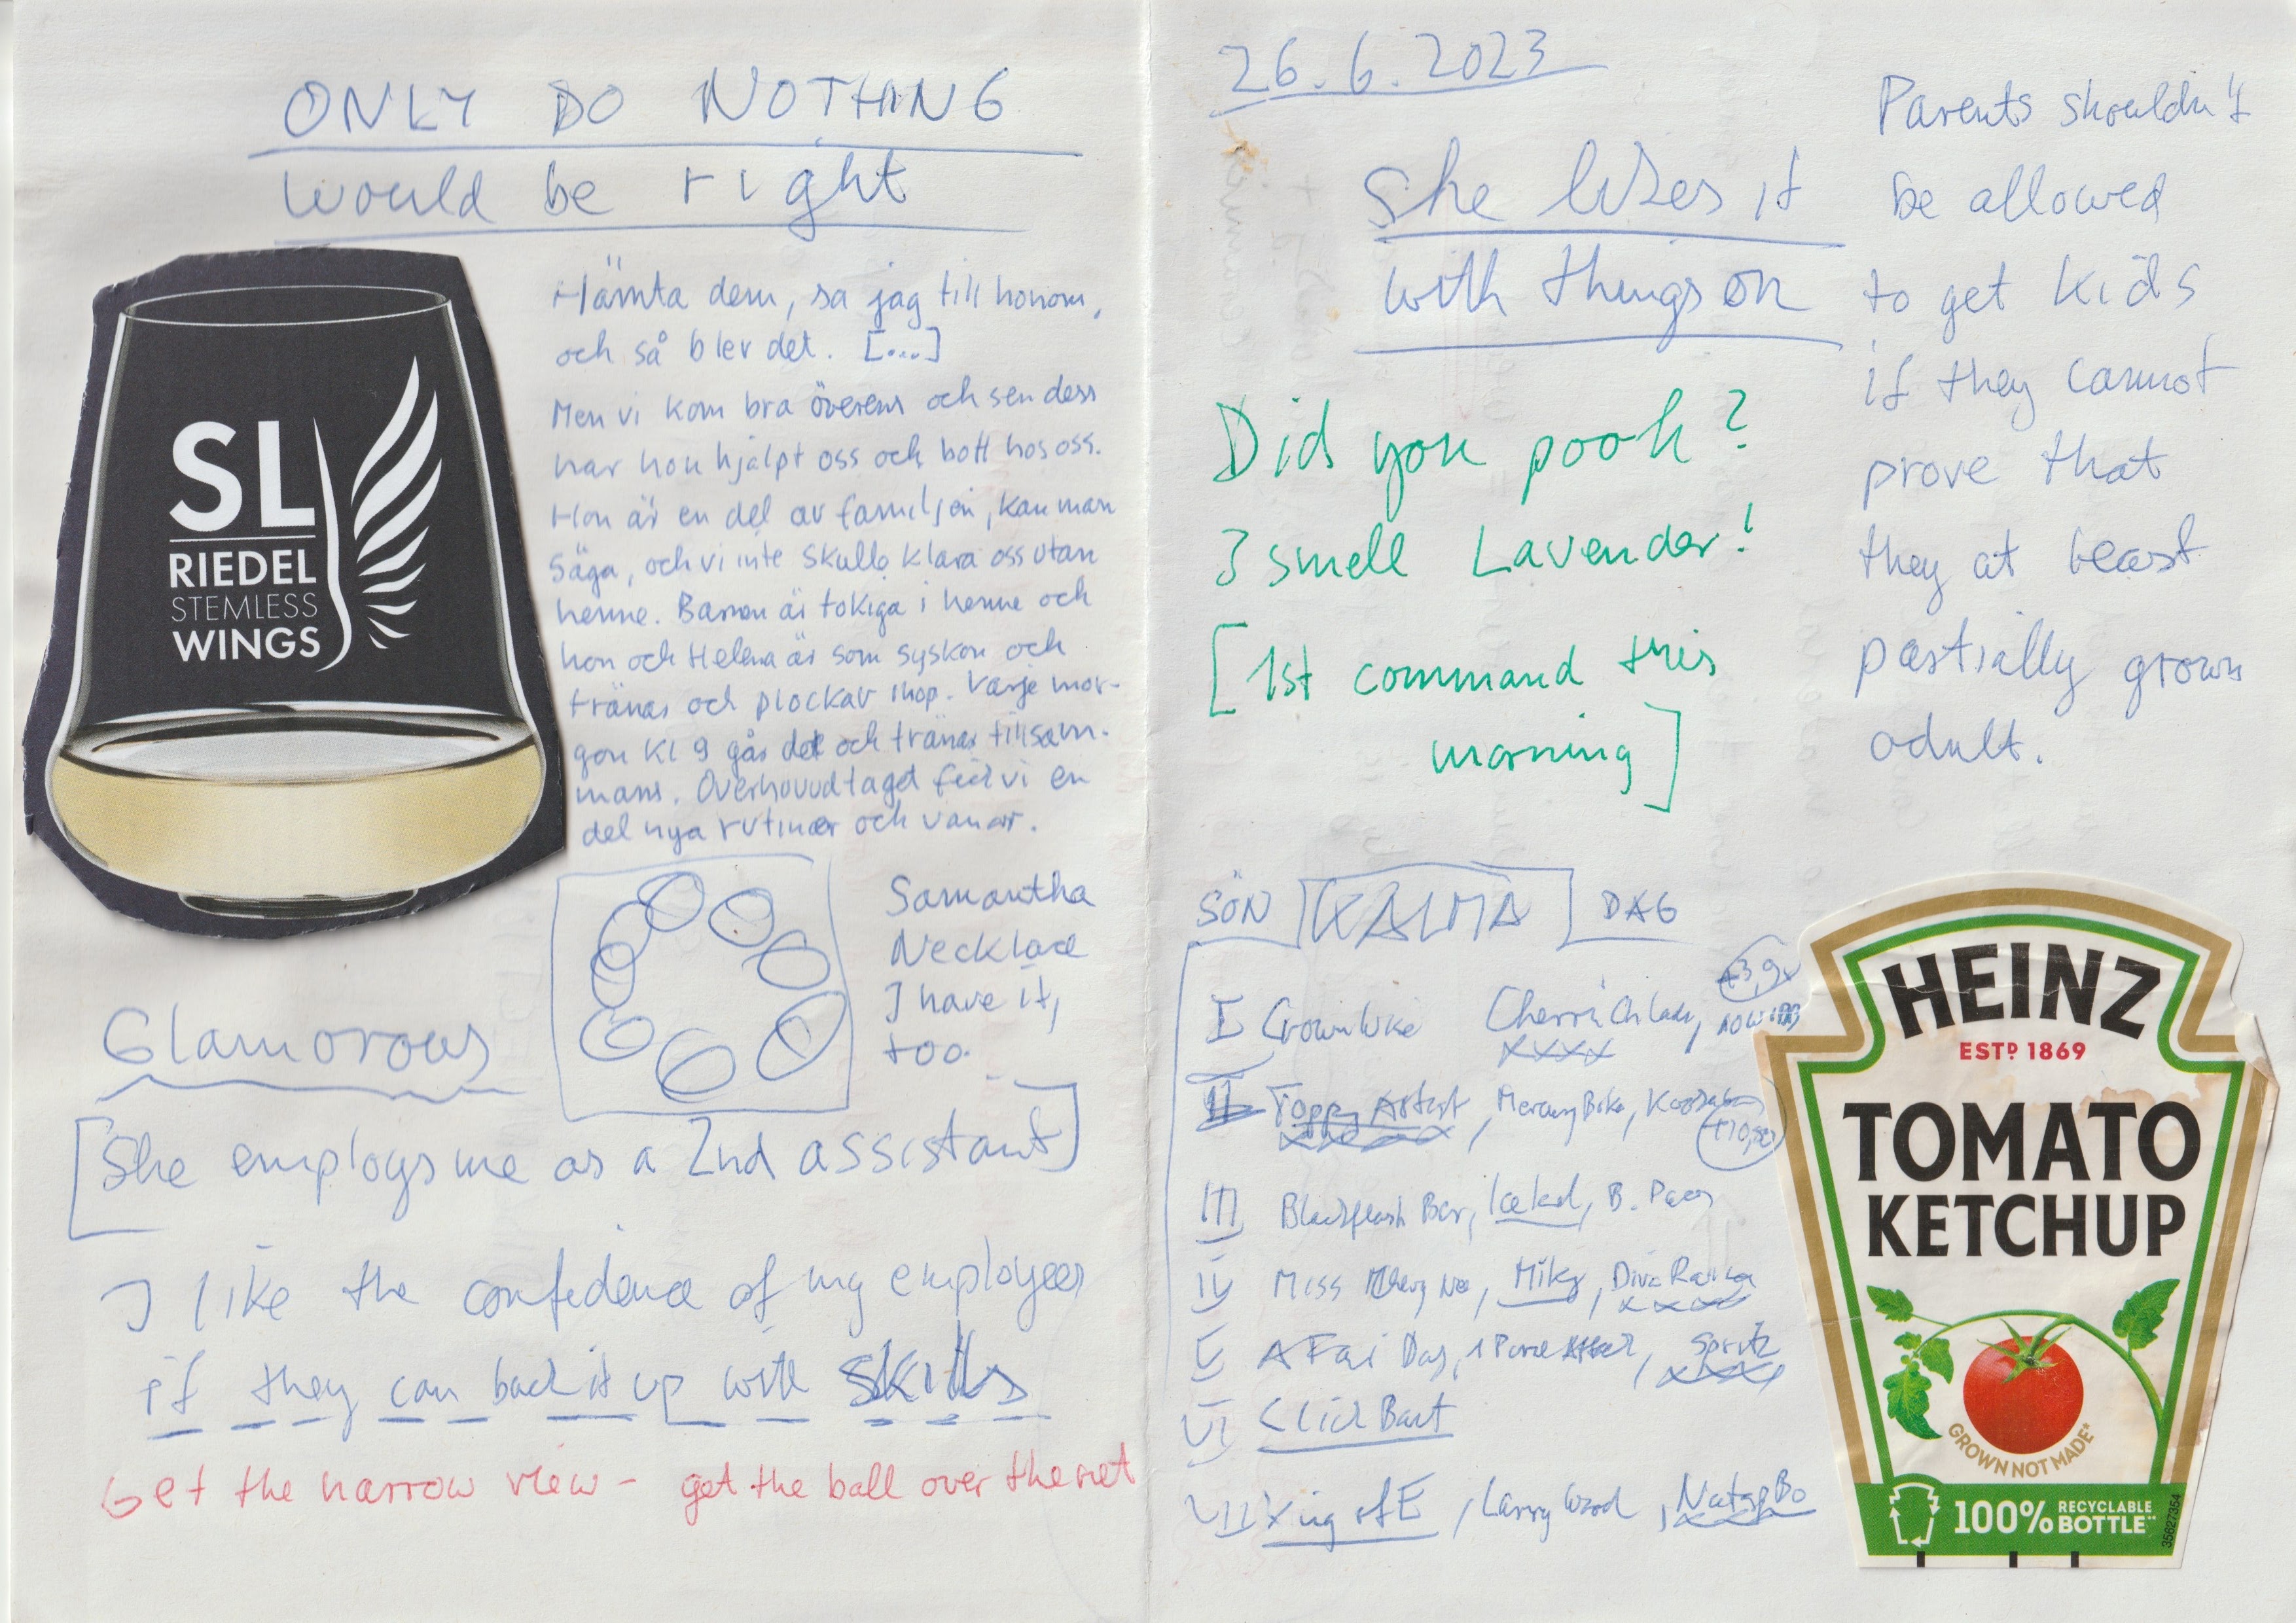 ONLY DO NOTHING
would be right
SL
RIEDEL
STEMLESS
WINGS
Hämta dem, sa jag till honom,
och så blev det. [...]
Men vi kom bra överens och sen dess
har hon hjälpt oss och bott hos oss.
Hon är en del av familjen, kan man
säga, och vi inte skulle klara oss utan
henne. Barnen är tokiga i henne och
hon och Helena är som syskon och
tränas och plockar ihop. Varje mor-
gon kl 9 går det och tränar tillsam-
mans. Överhouvdtaget fick vi en
del nya rutiner och vanor.
Samantha
Necklace
I have it,
too.
Glamorous
[She employs me as a 2nd assistant]
I like the confidence of my employees
if they can back it up with skills
Get the narrow view - get the ball over the net
26.6.2023
She likes it
with things on
Parents shouldn't
be allowed
to get kids
if they cannot
prove that
they at least
partially grown
adult.
Did you pooh?
I smell Lavender!
[1st command this
morning]
SÖN KALMA DAG
I Crownlike
II Topp Artist, Mercury Bike,
III Blackflash Bar, Iceked, B.
IV Miss, Miky, Diva
V A Fai Day, Spritz
VI Click Bait
VII King of E, Larry Wood,
HEINZ
ESTD 1869
TOMATO
KETCHUP
GROWN NOT MADE*
100% RECYCLABLE
BOTTLE**
35627354